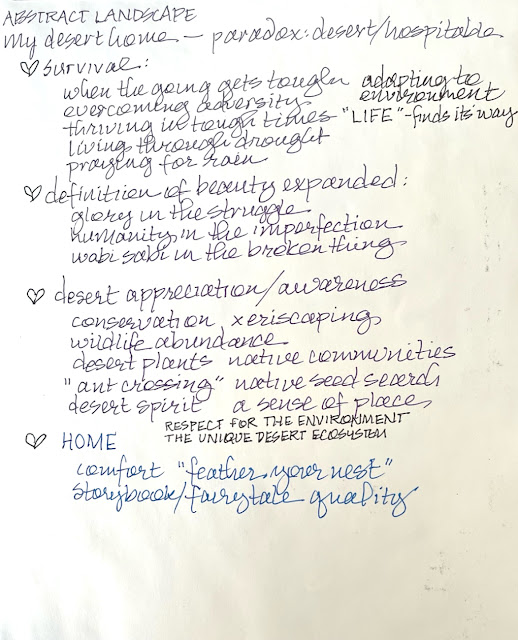 ABSTRACT LANDSCAPE
my desert home — paradox: desert/hospitable
♡ survival:
when the going gets tough adapting to
overcoming adversity environment
thriving in tough times "LIFE"-finds its way
living through drought
praying for rain
♡ definition of beauty expanded:
glory in the struggle
humanity in the imperfection
wabi sabi in the broken thing
♡ desert appreciation/awareness
conservation xeriscaping
wildlife abundance
desert plants native communities
"ant crossing" native seed search
desert spirit a sense of place
RESPECT FOR THE ENVIRONMENT
THE UNIQUE DESERT ECOSYSTEM
♡ HOME
comfort "feather your nest"
storybook/fairytale quality